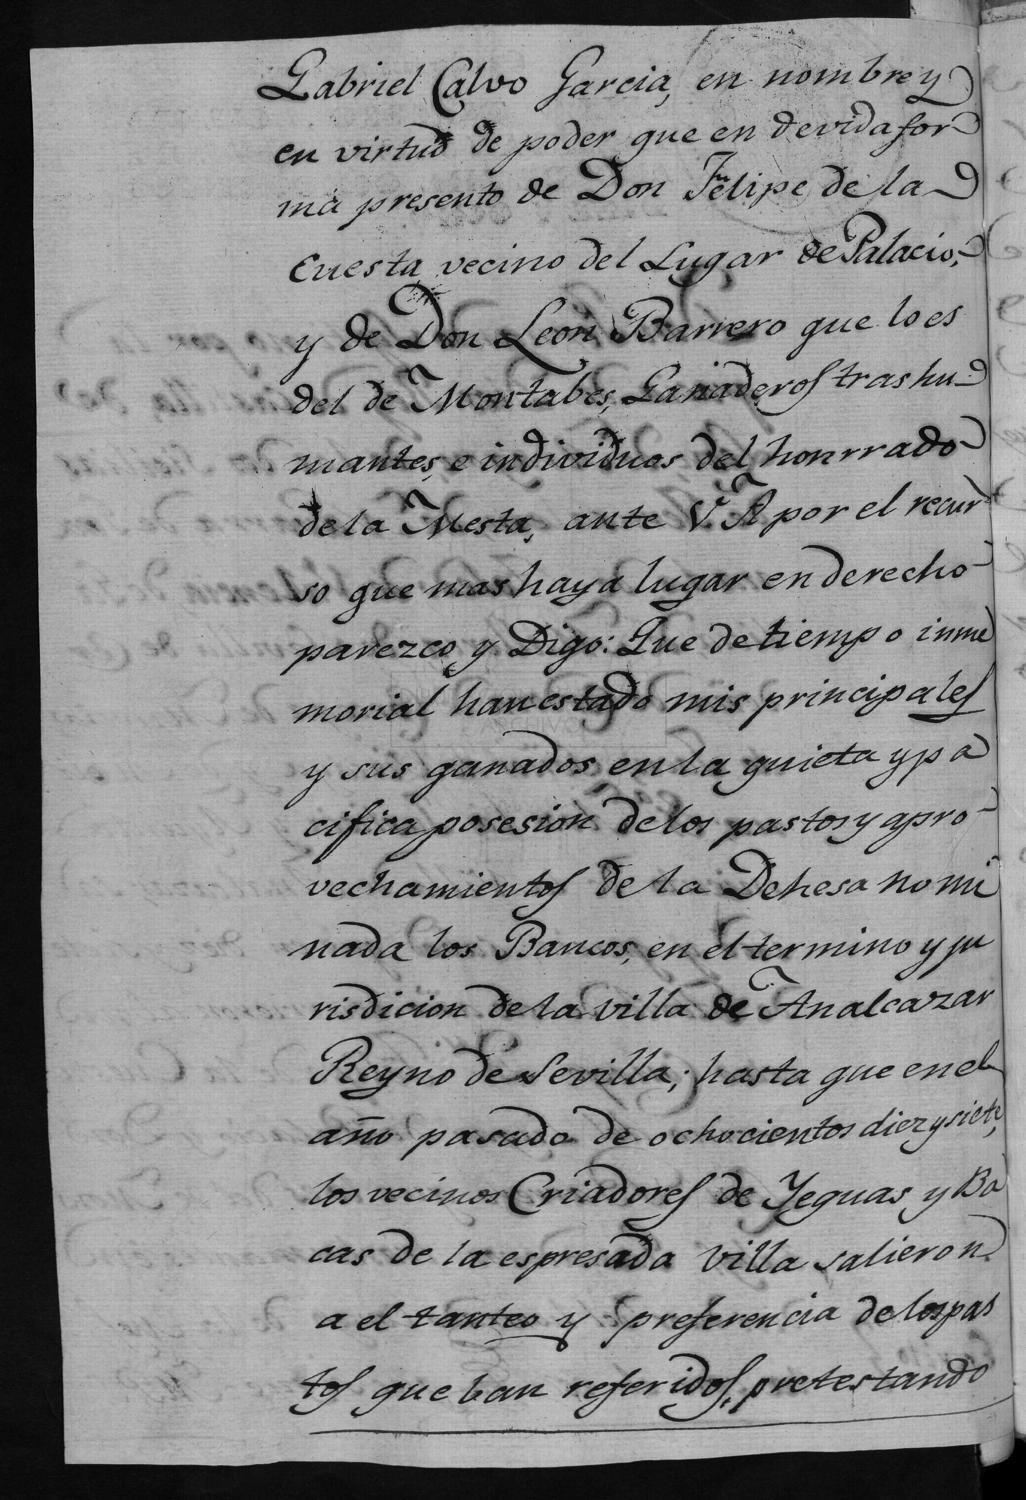 Gabriel Calvo Garcia, en nombre y
en virtud de poder que en devida for
ma presento de Don Felipe de la
Cuesta vecino del Lugar de Palacio,
y de Don Leon Barrero que lo es
del de Montabes, Ganaderos trashu-
mantes, e individuos del honrrado
de la Mesta, ante V.A por el recur
so que mas haya lugar en derecho
parezco y Digo: Que de tiempo inme
morial han estado mis principales
y sus ganados en la quieta y pa
cifica posesion de los pastos y apro-
vechamientos de la Dehesa nomi
nada los Bancos, en el termino y ju
risdicion de la villa de Analcazar
Reyno de Sevilla; hasta que en el
año pasado de ochocientos diez y siete,
los vecinos Criadores de Yeguas y Ba
cas de la espresada villa salieron
a el tanteo y preferencia de los pas
tos que ban referidos, pretestando